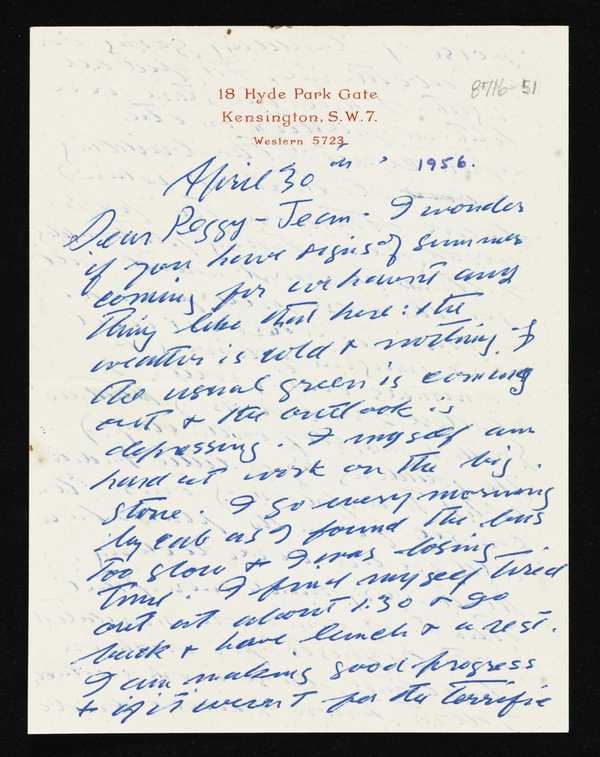 8716-51
18 Hyde Park Gate
Kensington, S.W.7.
Western 5723
April 30th, 1956.
Dear Peggy-Jean - I wonder
if you have signs of summer
coming for we havn't any
thing like that here: & the
weather is cold & nothing of
the usual green is coming
out & the outlook is
depressing. I myself am
hard at work on the big
stone. I go every morning
by cab as I found the bus
too slow & I was losing
time. I find myself tired
out at about 1.30 & go
back & have lunch & a rest.
I am making good progress
& if it weren't for the terrific